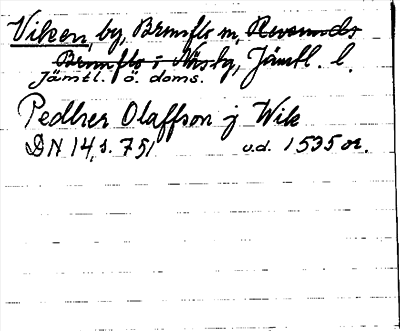 Viken, by, Brunflo m, Revsunds
Brunflo i Näsby, Jämtl. l.
Jämtl. ö. doms.
Pedher Olaffson j Wik
DN 14, s. 751 u.d. 1535 or.